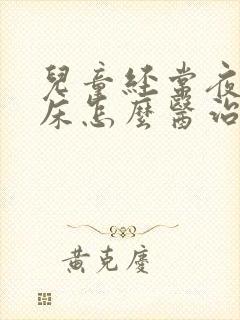 兒童經常夜
床怎麼醫治
黃克慶